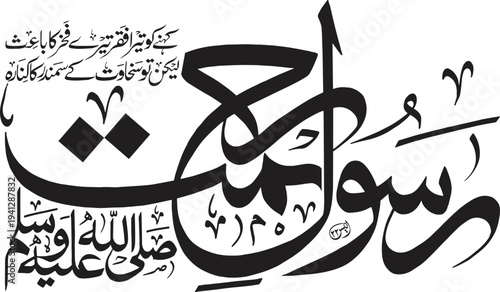 کہنے کو تیرا فقر تیرے فخر کا باعث
لیکن تو سخاوت کے سمندر کا کنارہ
رسول رحمت
صلی اللہ علیہ وسلم
Adobe Stock | #1941287832